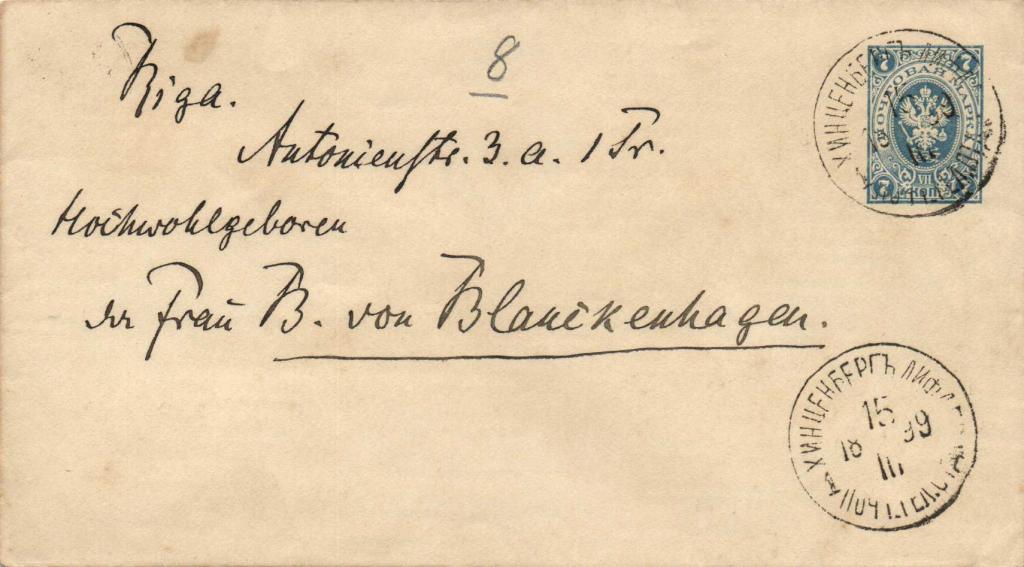 8
Riga.
Antonienstr. 3. a. 1 Tr.
Hochwohlgeboren
der Frau B. von Blanckenhagen.
7 7
ПОЧТОВАЯ МАРКА
7 КОП.
ХИНЦЕНБЕРГЪ ЛИФЛ.
III
ХИНЦЕНБЕРГЪ ЛИФЛ.
15
18 99
III
ПОЧ. ТЕЛ. ОТД.